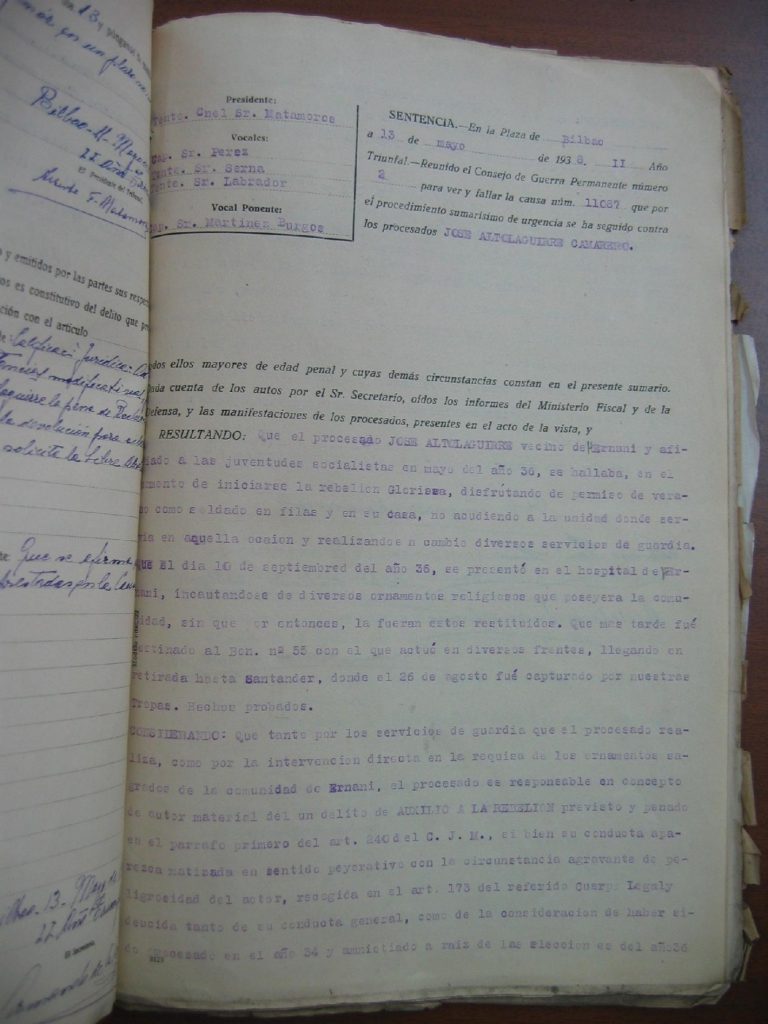 13 y póngase
en un plazo
Bilbao
El Presidente del Tribunal
y emitidos por las partes sus
os es constitutivo del delito que
ción con el artículo
Calificació Jurídica:
modificativas
la pena de
la devolución para
solicite la
Que se
El Secretario
Presidente:
Tente. Cnel Sr. Matamoros
Vocales:
Cap. Sr. Perez
Tente. Sr. Serna
Tente. Sr. Labrador
Vocal Ponente:
Cap. Sr. Martinez Burgos
SENTENCIA.—En la Plaza de Bilbao
a 13 de mayo de 1938. II Año
Triunfal.—Reunido el Consejo de Guerra Permanente número
2 para ver y fallar la causa núm. 11087 que por
el procedimiento sumarísimo de urgencia se ha seguido contra
los procesados JOSE ALTOLAGUIRRE CAMARERO.
odos ellos mayores de edad penal y cuyas demás circunstancias constan en el presente sumario.
Dada cuenta de los autos por el Sr. Secretario, oídos los informes del Ministerio Fiscal y de la
Defensa, y las manifestaciones de los procesados, presentes en el acto de la vista, y
RESULTANDO: Que el procesado JOSE ALTOLAGUIRRE vecino de Ernani y afi-
liado a las juventudes socialistas en mayo del año 36, se hallaba, en el
momento de iniciarse la rebelion Gloriosa, disfrutando de permiso de vera-
no como soldado en filas y en su casa, no acudiendo a la unidad donde ser-
via en aquella ocaion y realizandos a cambio diversos servicios de guardia.
QUE El dia 10 de septiembred del año 36, se presentó en el hospital de Er-
nani, incautandose de diversos ornamentos religiosos que poseyera la comu-
nidad, sin que or entonces, la fueran estos restituidos. Que mas tarde fué
destinado al Bon. nº 55 con el que actuó en diversos frentes, llegando en
retirada hasta Santander, donde el 26 de agosto fué capturado por nuestras
Tropas. Hechos probados.
CONSIDERANDO: Que tanto por los servicios de guardia que el procesado rea-
liza, como por la intervencion directa en la requisa de los ornamentos sa-
grados de la comunidad de Ernani, el procesado es responsable en concepto
de autor material del un delito de AUXILIO A LA REBELION previsto y penado
en el parrafo primero del art. 240 del C. J. M., si bien su conducta apa-
rezca matizada en sentido peyorativo con la circunstancia agravante de pe-
ligrosidad del actor, recogida en el art. 173 del referido Cuerpo Legaly
deducida tanto de su conducta general, como de la consideracion de haber si-
do procesado en el año 34 y amnistiado a raiz de las eleccion es del año36